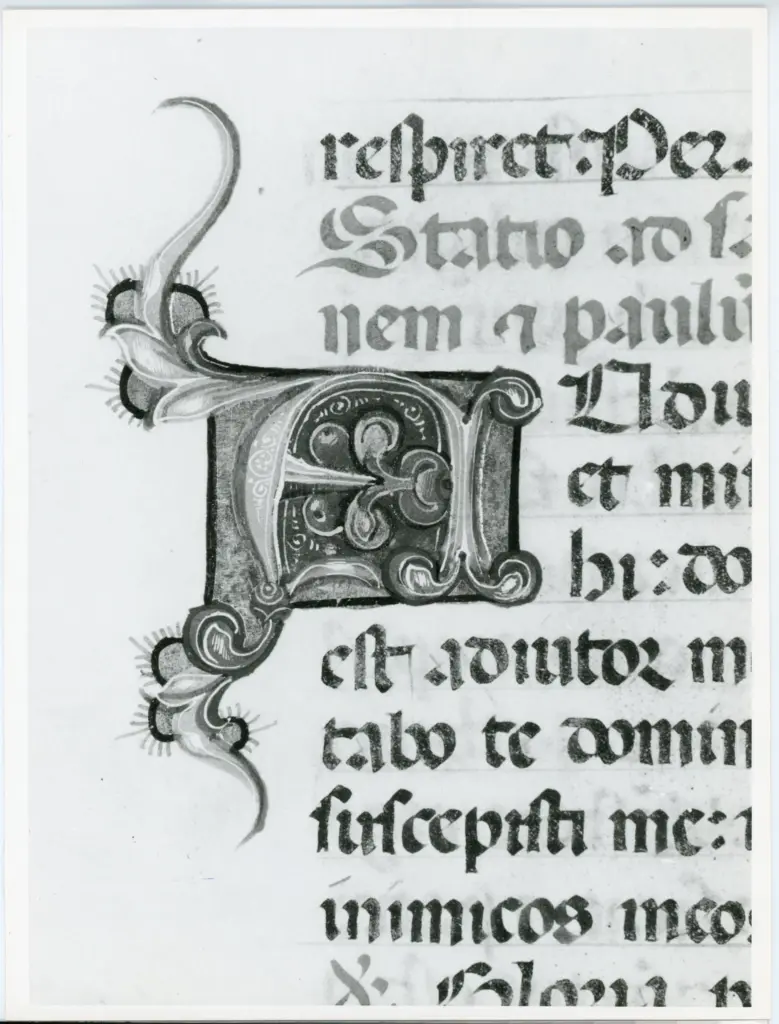 respiret. Per.
Statio ad s.
nem ⁊ paulū
AUdiu
et mi
hi: do
est adiutor m
tabo te domin
suscepisti me:
inimicos meos
Gloria p